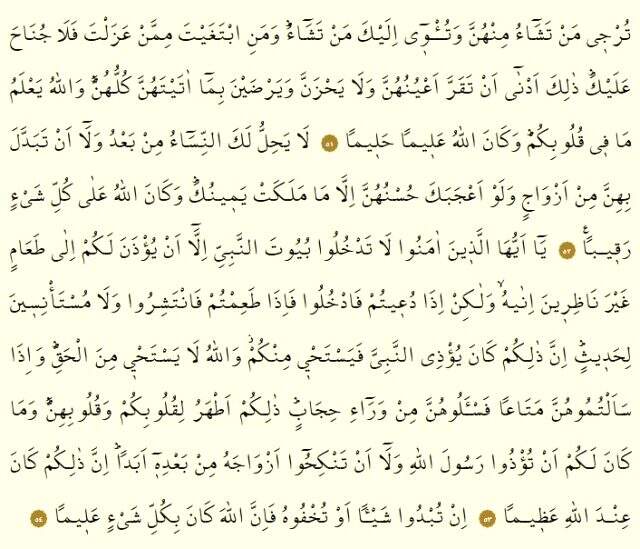 تُرْجٖي مَنْ تَشَٓاءُ مِنْهُنَّ وَتُــْٔوٖٓي اِلَيْكَ مَنْ تَشَٓاءُۜ وَمَنِ ابْتَغَيْتَ مِمَّنْ عَزَلْتَ فَلَا جُنَاحَ
عَلَيْكَۜ ذٰلِكَ اَدْنٰٓى اَنْ تَقَرَّ اَعْيُنُهُنَّ وَلَا يَحْزَنَّ وَيَرْضَيْنَ بِمَٓا اٰتَيْتَهُنَّ كُلُّهُنَّۜ وَاللّٰهُ يَعْلَمُ
مَا فٖي قُلُوبِكُمْۜ وَكَانَ اللّٰهُ عَلٖيمًا حَلٖيمًا ﴿٥١﴾ لَا يَحِلُّ لَكَ النِّسَٓاءُ مِنْ بَعْدُ وَلَٓا اَنْ تَبَدَّلَ
بِهِنَّ مِنْ اَزْوَاجٍ وَلَوْ اَعْجَبَكَ حُسْنُهُنَّ اِلَّا مَا مَلَكَتْ يَمٖينُكَۜ وَكَانَ اللّٰهُ عَلٰى كُلِّ شَيْءٍ
رَقٖيبًاࣖ ﴿٥٢﴾ يَٓا اَيُّهَا الَّذٖينَ اٰمَنُوا لَا تَدْخُلُوا بُيُوتَ النَّبِيِّ اِلَّٓا اَنْ يُؤْذَنَ لَكُمْ اِلٰى طَعَامٍ
غَيْرَ نَاظِرٖينَ اِنٰيهُۙ وَلٰكِنْ اِذَا دُعٖيتُمْ فَادْخُلُوا فَاِذَا طَعِمْتُمْ فَانْتَشِرُوا وَلَا مُسْتَأْنِسٖينَ
لِحَدٖيثٍۜ اِنَّ ذٰلِكُمْ كَانَ يُؤْذِى النَّبِيَّ فَيَسْتَحْيٖ مِنْكُمْۘ وَاللّٰهُ لَا يَسْتَحْيٖ مِنَ الْحَقِّۜ وَاِذَا
سَاَلْتُمُوهُنَّ مَتَاعًا فَسْـَٔلُوهُنَّ مِنْ وَرَٓاءِ حِجَابٍۜ ذٰلِكُمْ اَطْهَرُ لِقُلُوبِكُمْ وَقُلُوبِهِنَّۜ وَمَا
كَانَ لَكُمْ اَنْ تُؤْذُوا رَسُولَ اللّٰهِ وَلَٓا اَنْ تَنْكِحُٓوا اَزْوَاجَهُ مِنْ بَعْدِهٖٓ اَبَدًاۜ اِنَّ ذٰلِكُمْ كَانَ
عِنْدَ اللّٰهِ عَظٖيمًا ﴿٥٣﴾ اِنْ تُبْدُوا شَيْـًٔا اَوْ تُخْفُوهُ فَاِنَّ اللّٰهَ كَانَ بِكُلِّ شَيْءٍ عَلٖيمًا ﴿٥٤﴾